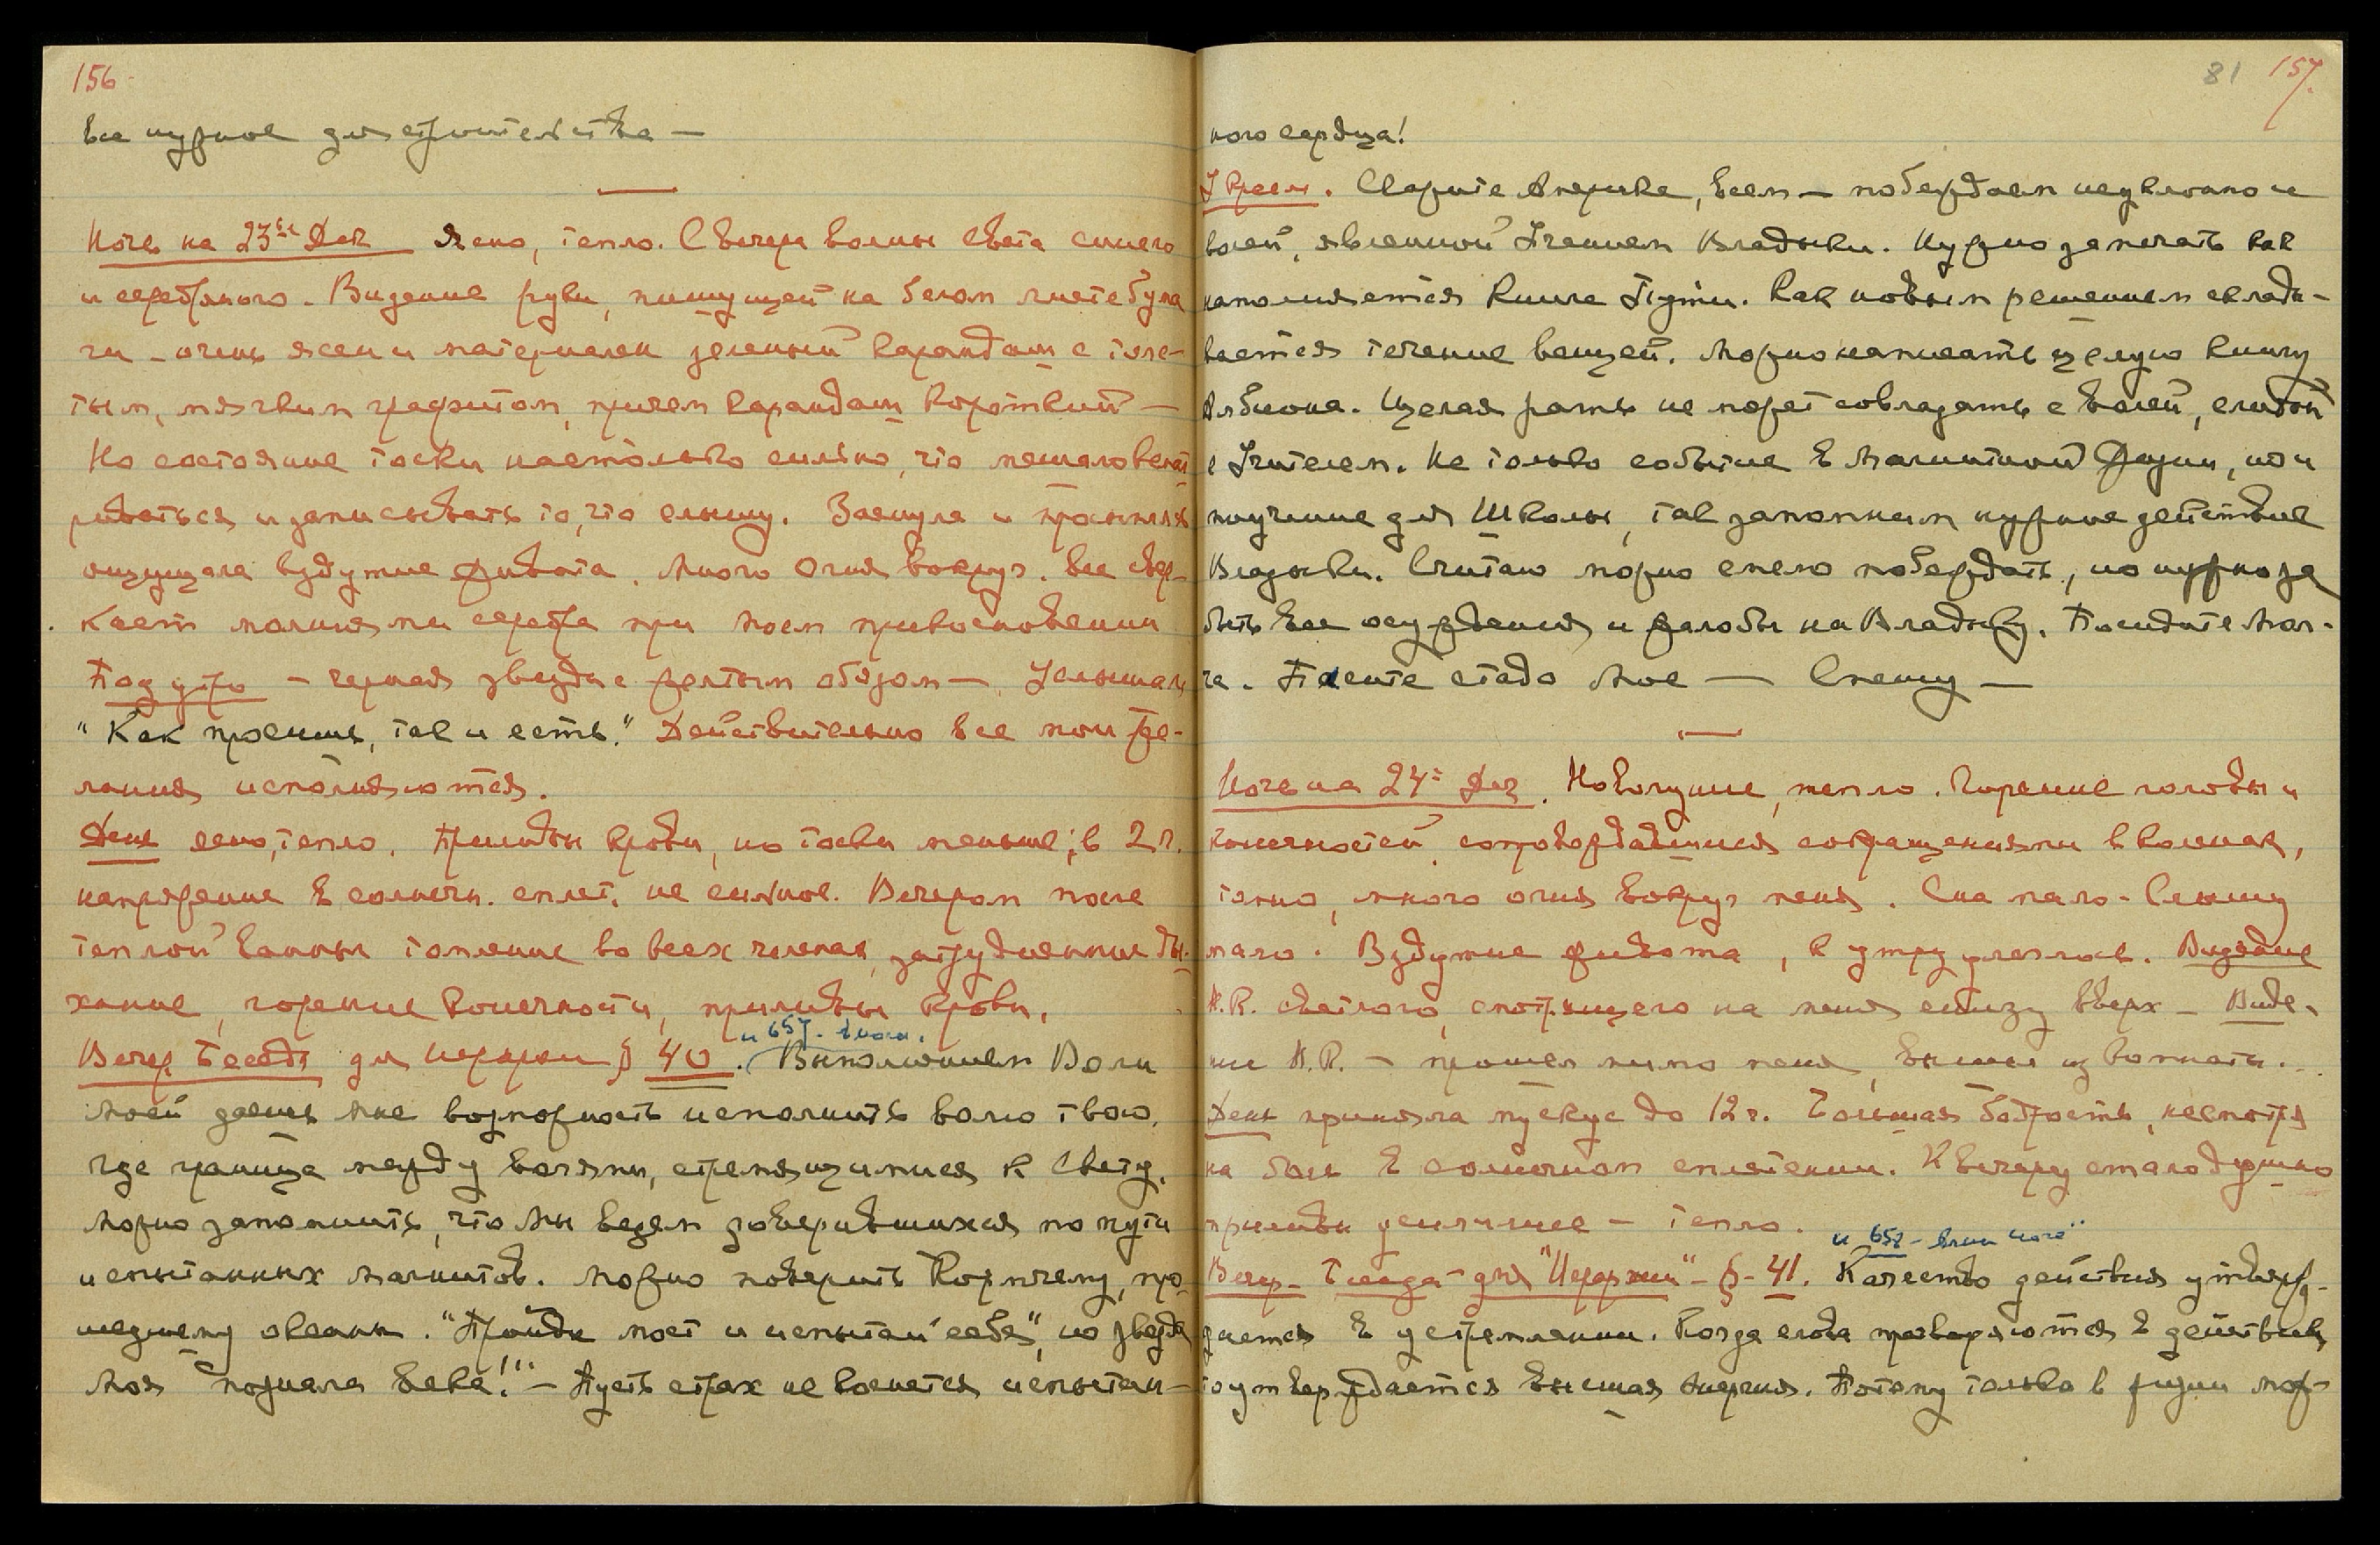 156
все нужное для строительства —
Ночь на 23ье Дек Ясно, тепло. С вечера волны света синего
и серебряного. Видение руки, пишущей на белом листе бума
ги – очень ясен и материален зеленый карандаш с толс-
тым, мягким графитом, причем карандаш короткий —
Но состояние тоски настолько сильно, что мешало всмат
риваться и записывать то, что слышу. Заснула и проснулась
ощущала вздутие живота. Много Огня вокруг. Все свер-
кает молниями серебра при моем прикосновении
Под утро – черная звезда с желтым ободом — Услышала
"Как просишь, так и есть." Действительно все мои же-
лания исполняются.
День ясно, тепло. Приливы крови, но тоски меньше; в 2 ч.
напряжение в солнечн. сплет. не сильное. Вечером после
теплой ванны томление во всех членах, затрудненные ды-
хание, горение конечности, приливы крови.
и 657.
Вечер. Беседа для Иерархии § 40. Выполнением Воли
Моей даешь мне возможность исполнить волю твою.
Где граница между волями, стремящимися к Свету.
Можно запомнить, что Мы ведем доверившихся по пути
испытанных магнитов. Можно поверить Кормчему, про
шедшему океаны. "Пройди мост и испытай себя", но звезда
Моя познала века!" – Пусть страх не коснется испытан-
81 157.
ного сердца!
Утром. Скажите Америке, всем — побеждаем неуклонно и
волей, явленной Учением Владыки. Нужно замечать как
наполняется Книга Пути. Как новым решением склады-
вается течение вещей. Можно написать целую книгу
Альбиона. Целая рать не может совладать с волей, слитой
с Учителем. Не только событие в магнитной жизни, но и
поучение для Школы, так запомним нужное действие
Владыки. Считаю можно смело побеждать, но нужно за
быть все осуждения и жалобы на Владыку. Посидите мол-
ча. Пасите стадо Мое — Спешу —
Ночь на 24е Дек. Новолуние, тепло. Горение головы и
конечностей, сопровождавшиеся сокращениями в коленах,
томно, много огня вокруг меня. Сна мало. Слышу
мало. Вздутие живота, к утру улеглось. Видение
Н.К. светлого, смотрящего на меня снизу вверх – Виде-
ние Н.К. – прошел мимо меня, вышел из комнаты...
День приняла мускус до 12 г. Большая бодрость, несмотря
на боль в солнечном сплетении. К вечеру стало душно
приливы усилились – тепло.
и 658 –
Вечер – Беседа – для "Иерархии" – § – 41. Качество действия утверж-
дается в устремлении. Когда слова претворяются в действие,
то утверждается высшая энергия. Потому только в жизни мож-